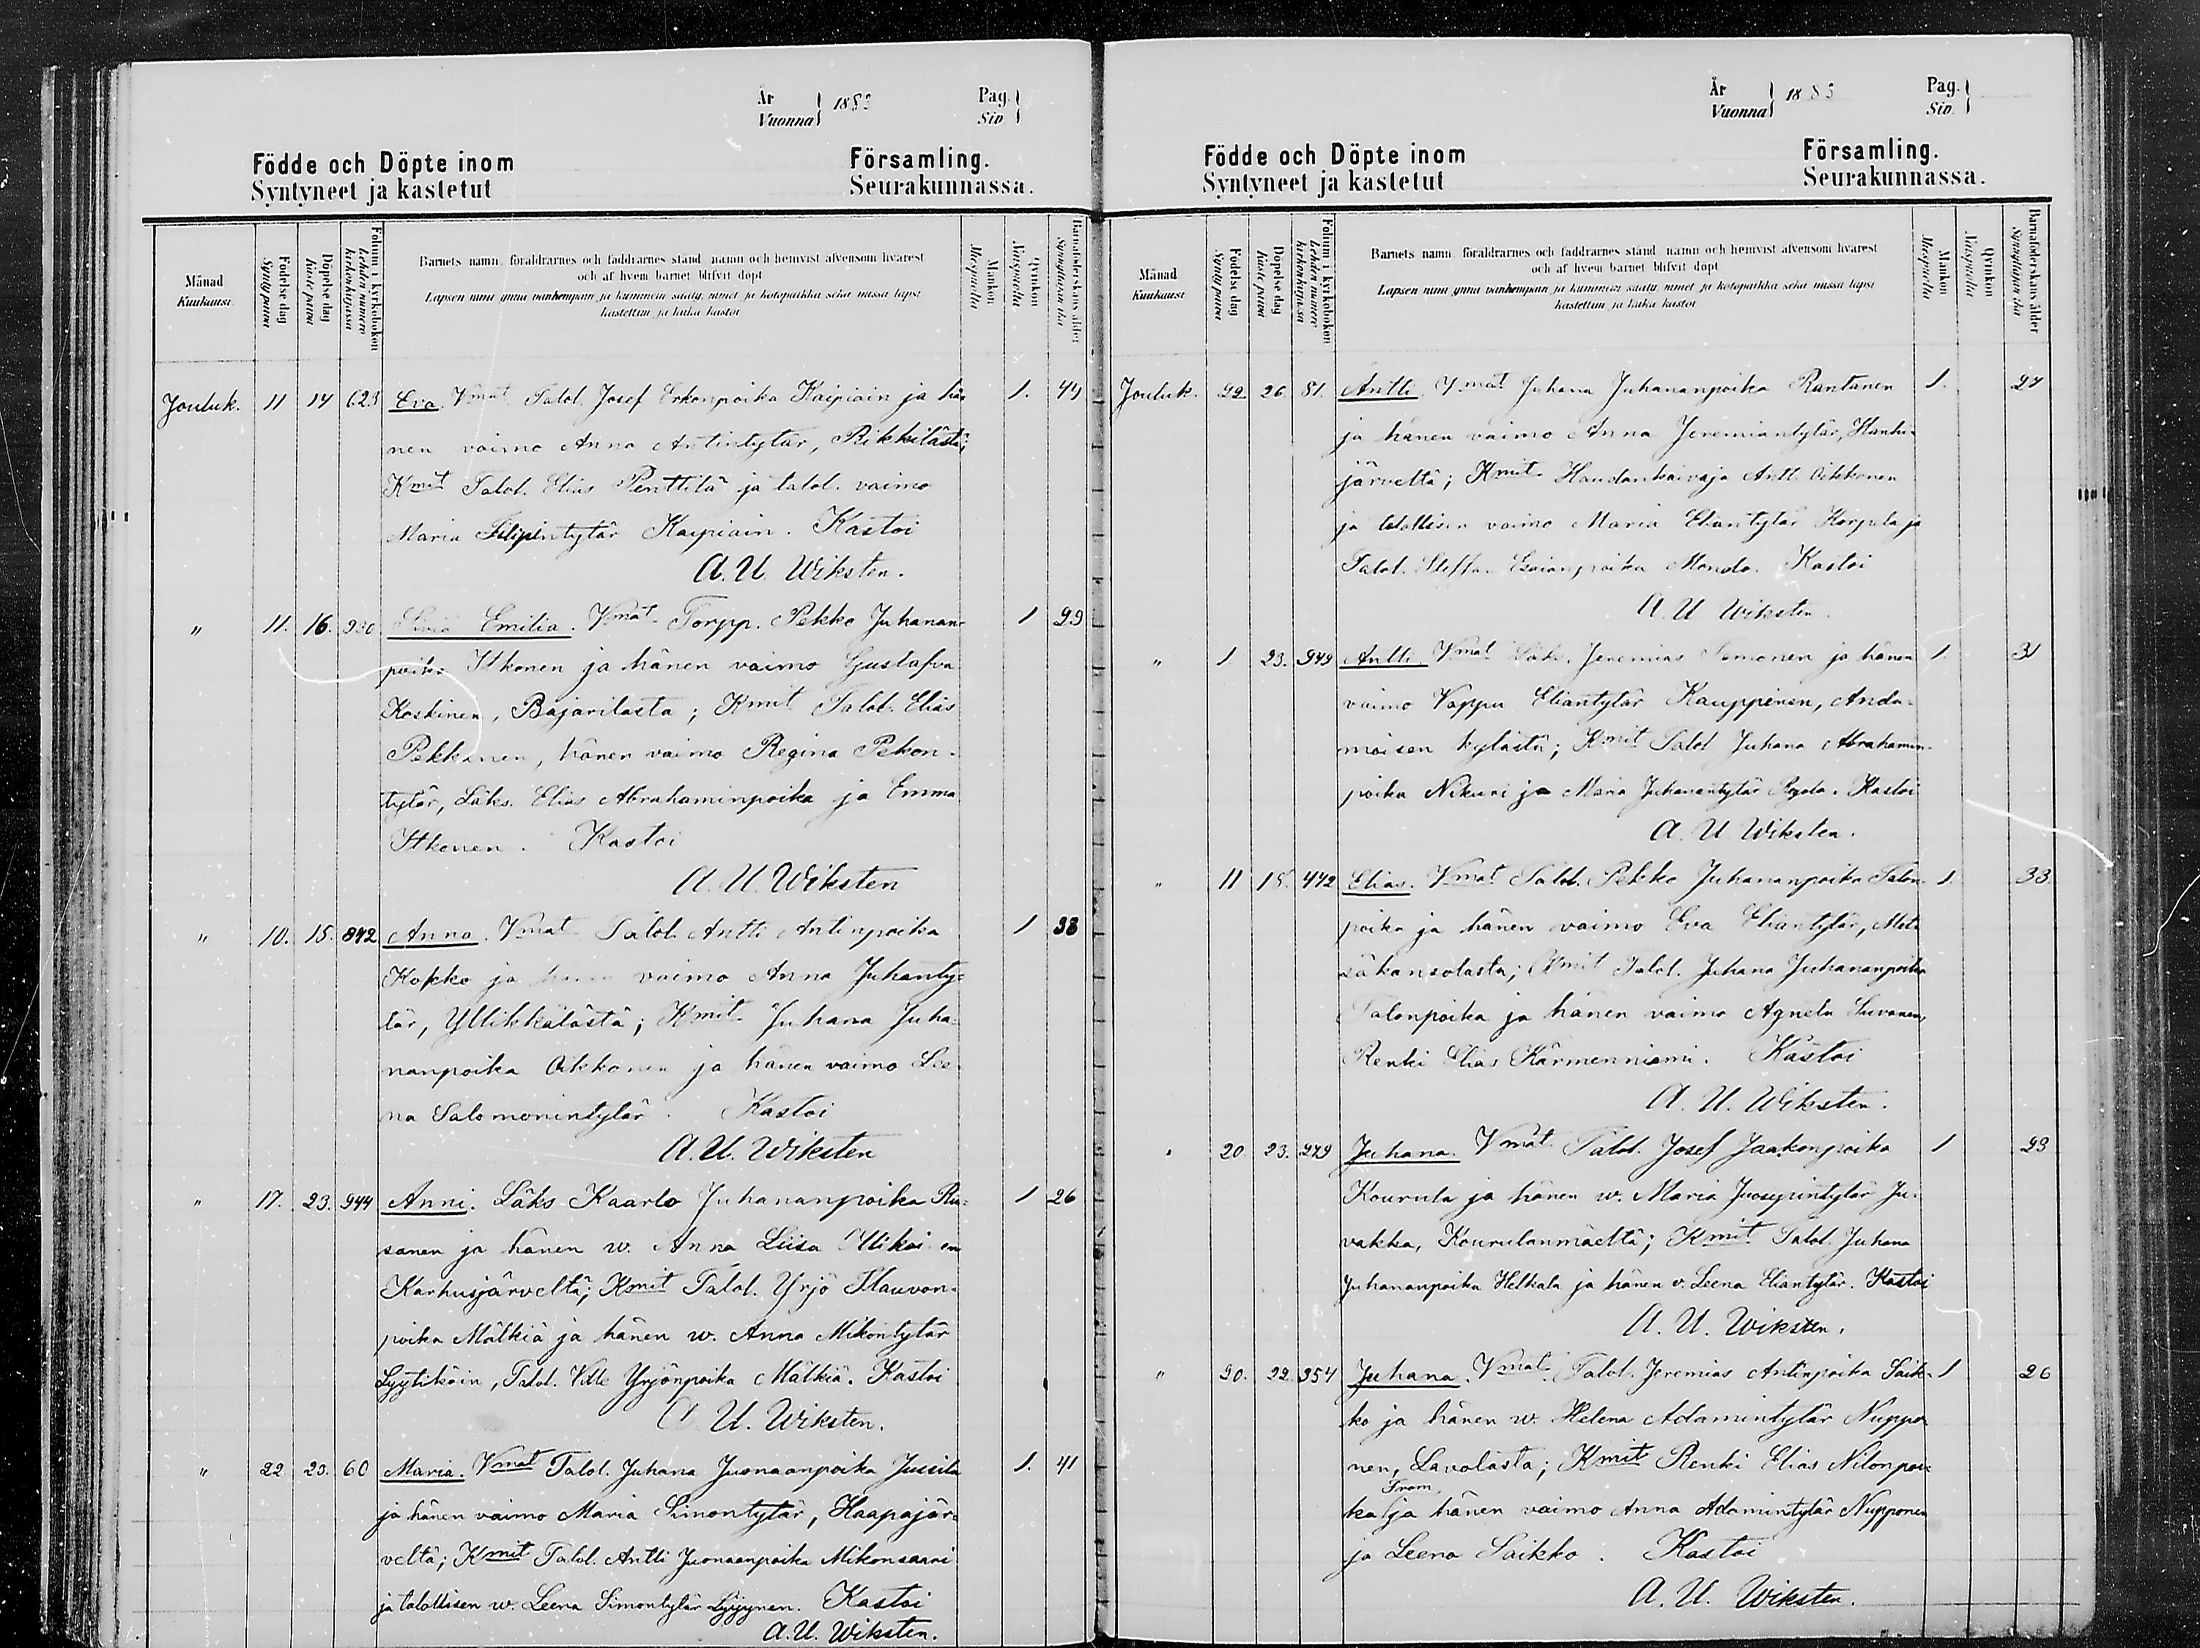 År
Vuonna } 1883
Pag.
Siv. }
Födde och Döpte inom Församling.
Syntyneet ja kastetut Seurakunnassa.
Månad
Kuukausi.
Födelse dag
Synty päivä
Döpelse dag
Kaste päivä
Folium i kyrkoboken
Lehden numero kirkonkirjassa
Barnets namn, föräldrarnes och faddrarnes stånd, namn och hemvist äfvensom hvarest
och af hvem barnet blifvit döpt
Lapsen nimi ynnä vanhempain ja kummein sääty, nimet ja kotopaikka sekä missä lapsi
kastettiin ja kuka kastoi
Mankön
Miespuolta
Qvinkön
Vaispuolta
Barnaföderskans ålder
Synnyttäjän ikä
Jouluk. 11 14 623 Eva. Vmat Talol. Josef Erkonpoika Kaipiain ja hä= 1. 44
nen vaimo Anna Antintytär, Rikkilästä;
Kmit Talol. Elias Penttilä ja talol. vaimo
Maria Filipintytär Kaipiain. Kastoi
A. U. Wiksten.
" 11. 16. 930 Emilia. Vmat Torpp. Pekko Juhanan= 1 29
poika Itkonen ja hänen vaimo Gustafva
Koskinen, Bajarilasta; Kmit Talol. Elias
Pekkanen, hänen vaimo Regina Pekon=
tytär, Läks. Elias Abrahaminpoika ja Emma
Itkonen. Kastoi
A. U. Wiksten
" 10. 15. 842 Anna. Vmat Talol. Antti Antinpoika 1 38
Kokko ja hänen vaimo Anna Juhanty=
tär, Yllikkälästä; Kmit Juhana Juha=
nanpoika Oikkonen ja hänen vaimo Lee=
na Salomonintytär. Kastoi
A. U. Wiksten
" 17. 23. 944 Anni. Läks Kaarlo Juhananpoika 1 26
sanen ja hänen w. Anna Liisa
Karhusjärveltä; Kmit Talol. Yrjö Paavon=
poika Mälkiä ja hänen w. Anna Mikontytär
Lyytikäin, Talol. Ville Yrjönpoika Mälkiä. Kastoi
A. U. Wiksten.
" 22 23. 60 Maria. Vmat Talol. Juhana Juonaanpoika Jussila 1. 41
ja hänen vaimo Maria Simontytär, Haapajär=
veltä; Kmit Talol. Antti Juonaanpoika Mikonsaari
ja talollisen w. Leena Simontytär Lyyjynen. Kastoi
A. U. Wiksten.
År
Vuonna } 1883
Pag.
Siv. }
Födde och Döpte inom Församling.
Syntyneet ja kastetut Seurakunnassa.
Månad
Kuukausi
Födelse dag
Synty päivä
Döpelse dag
Kaste päivä
Folium i kyrkoboken
Lehden numero kirkonkirjassa
Barnets namn, föräldrarnes och faddrarnes stånd, namn och hemvist äfvensom hvarest
och af hvem barnet blifvit döpt
Lapsen nimi ynnä vanhempain ja kummein sääty, nimet ja kotopaikka sekä missä lapsi
kastettiin ja kuka kastoi
Mankön
Miespuolta
Qvinkön
Vaispuolta
Barnaföderskans ålder
Synnyttäjän ikä
Jouluk. 22. 26. 81. Antti Vmat Juhana Juhananpoika Rantanen 1. 27
ja hänen vaimo Anna Jeremiantytär, Hanhi=
järveltä; Kmit Haudankaivaja Antti Oikkonen
ja talollisen vaimo Maria Eliantytär Korpela ja
Talol. Esaianpoika Kastoi
A U Wiksten.
" 1 23. 949 Antti Vmat Läks. Jeremias Simonen ja hänen 1. 31
vaimo Vappu Eliantytär Kauppinen,
moisen kylästä; Kmit Talol Juhana Abrahamin=
poika Nikuri ja Maria Juhanantytär Kastoi
A. U Wiksten.
" 11 15. 442 Elias. Vmat Talol. Pekko Juhananpoika Talon 1. 33.
poika ja hänen vaimo Eva Eliantytär, Met=
säkansolasta; Kmit Talol. Juhana Juhananpoika
Talonpoika ja hänen vaimo Agneta Suvanen,
Renki Elias Kärmenniemi. Kastoi
A. U. Wiksten.
" 20 23. 279 Juhana. Vmat Talol. Josef Jaakonpoika 1 23
Kourula ja hänen w. Maria Juosepintytär Ju=
vakka, Kourulanmäeltä; Kmit Talol. Juhana
Juhananpoika Helkala ja hänen v. Leena Eliantytär. Kastoi
A. U. Wiksten.
" 20. 22. 354 Juhana. Vmat Talol. Jeremias Antinpoika Saik= 1 26
ko ja hänen w. Helena Adamintytär Nuppo
nen, Lavolasta; Kmit Renki Elias Nilonpoi=
From
ka ja hänen vaimo Anna Adamintytär Nupponen
ja Leena Saikko. Kastoi
A. U. Wiksten.